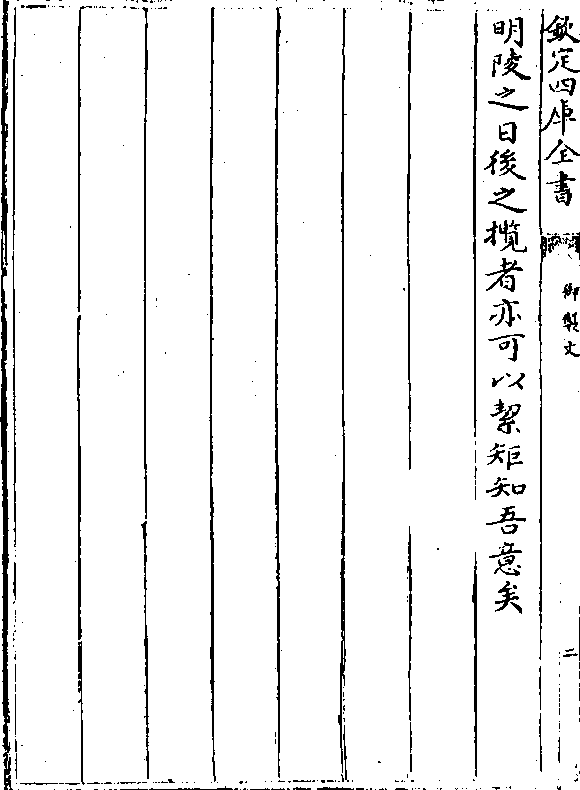 欽定四庫全書
御製文
二
明陵之日後之攬者亦可以絜矩知吾意矣